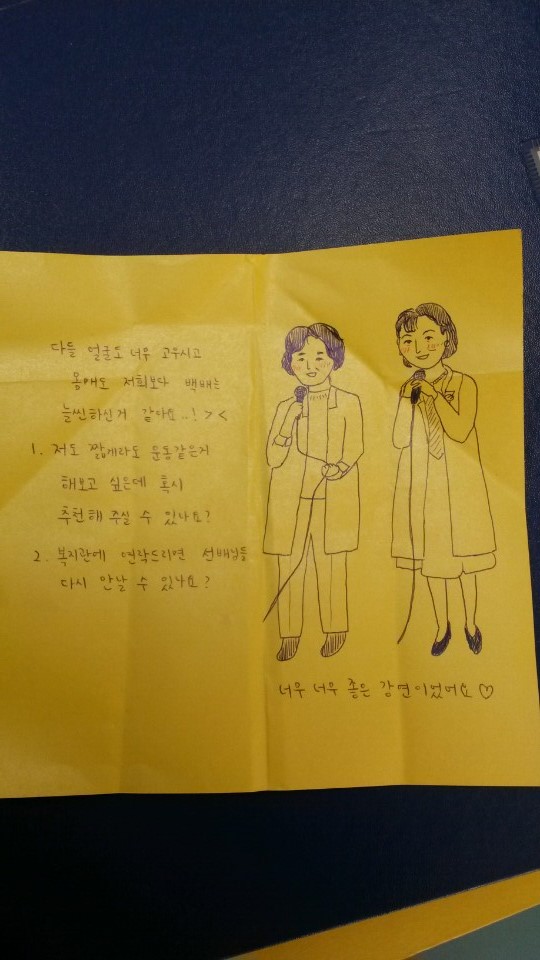 다들 얼굴도 너무 고우시고
몸매도 저희보다 백배는
늘씬하신거 같아요..! > <
1. 저도 짧게라도 운동같은거
해보고 싶은데 혹시
추천해 주실 수 있나요?
2. 복지관에 연락드리면 선배님들
다시 만날 수 있나요?
너무 너무 좋은 강연이었어요 ♡